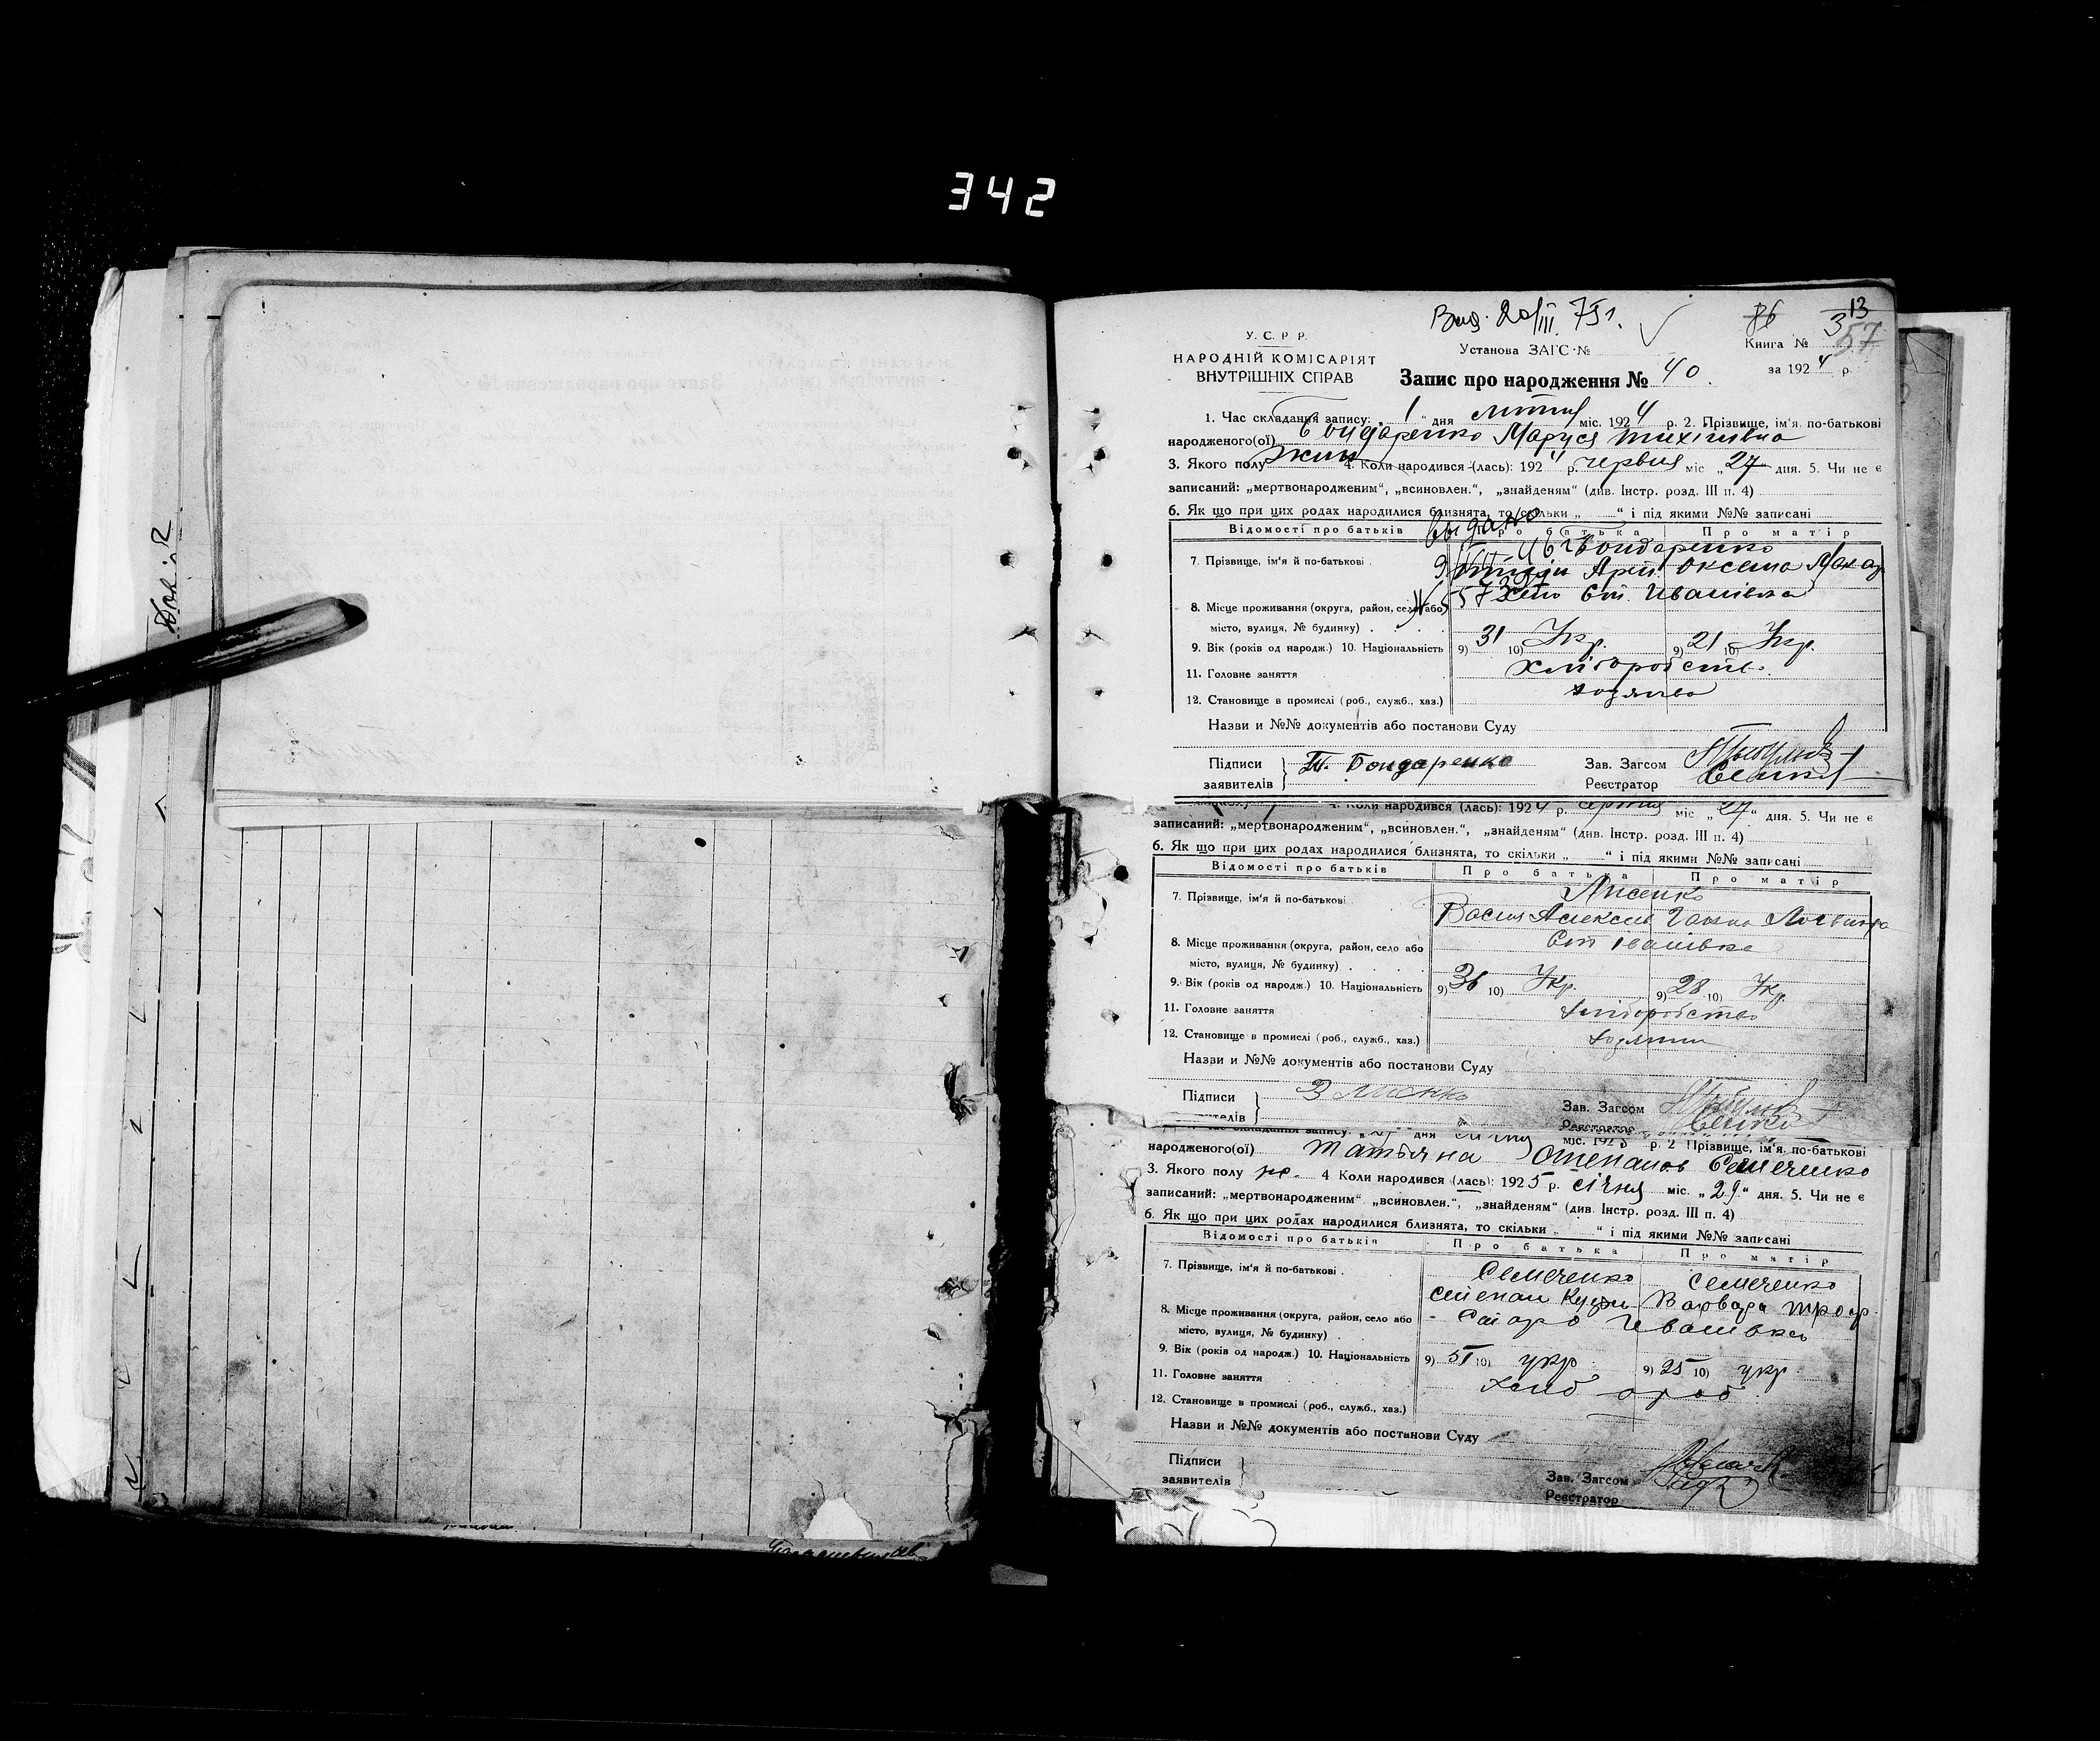 342
Вид. 20/III. 75 г.
86
13
3
57
У. С. Р. Р.
НАРОДНІЙ КОМІСАРІЯТ
ВНУТРІШНІХ СПРАВ
Установа ЗАГС №
Книга №
Запис про народження № 40.
за 1924 р.
1. Час складання запису: „1“ дня липня міс. 1924 р. 2. Прізвище, ім'я, по-батькові
народженого(ої) Бондаренко Маруся Тихінівна
3. Якого полу жін 4. Коли народився (лась): 1924 р. червня міс „27“ дня. 5. Чи не є
записаний: „мертвонародженим“, „всиновлен.“, „знайденям“ (див. Інстр. розд. III п. 4)
6. Як що при цих родах народилися близнята, то скільки „ “ і під якими №№ записані
выдано
Відомості про батьків Про батька Про матір
7. Прізвище, ім'я й по-батькові Бондаренко
Оксана Макар
8. Місце проживання (округа, район, село або село Ст. Іванівка
місто, вулиця, № будинку)
9. Вік (років од народж.) 10. Національність 9) 31 10) Укр. 9) 21 10) Укр.
11. Головне заняття Хліборобств.
12. Становище в промислі (роб., служб., хаз.) хозяїва
Назви и №№ документів або постанови Суду
Підписи Т. Бондаренко Зав. Загсом
заявителів Реєстратор
4. Коли народився (лась): 1924 р. червня міс. „27“ дня. 5. Чи не є
записаний: „мертвонародженим“, „всиновлен.“, „знайденям“ (див. Інстр. розд. III п. 4)
6. Як що при цих родах народилися близнята, то скільки „ “ і під якими №№ записані
Відомості про батьків Про батька Про матір
7. Прізвище, ім'я й по-батькові Лисенко
Ганна
8. Місце проживання (округа, район, село або Ст Іванівка
місто, вулиця, № будинку)
9. Вік (років од народж.) 10. Національність 9) 36 10) Укр. 9) 28 10) Укр.
11. Головне заняття хліборобство
12. Становище в промислі (роб., служб., хаз.)
Назви и №№ документів або постанови Суду
Підписи Зав. Загсом
Реєстратор
міс. 1925 р. 2 Прізвище, ім'я, по-батькові
народженого(ої) Татьяна Степанов Семеченко
3. Якого полу ж. 4 Коли народився (лась): 1925 р. січня міс. „29“ дня. 5. Чи не є
записаний: „мертвонародженим“ „всиновлен.“, „знайденям“ (див. Інстр. розд. III п. 4)
6. Як що при цих родах народилися близнята, то скільки „ “ і під якими №№ записані
Відомості про батьків Про батька Про матір
7. Прізвище, ім'я й по-батькові Семеченко Семеченко
Степан Кузьм Варвара Троф
8. Місце проживання (округа, район, село або Старо Іванівка
місто, вулиця, № будинку)
9. Вік (років од народж.) 10. Національність 9) 51 10) укр 9) 25 10) укр
11. Головне заняття хлібороб
12. Становище в промислі (роб., служб., хаз.)
Назви и №№ документів або постанови Суду
Підписи
заявителів Зав. Загсом
Реєстратор